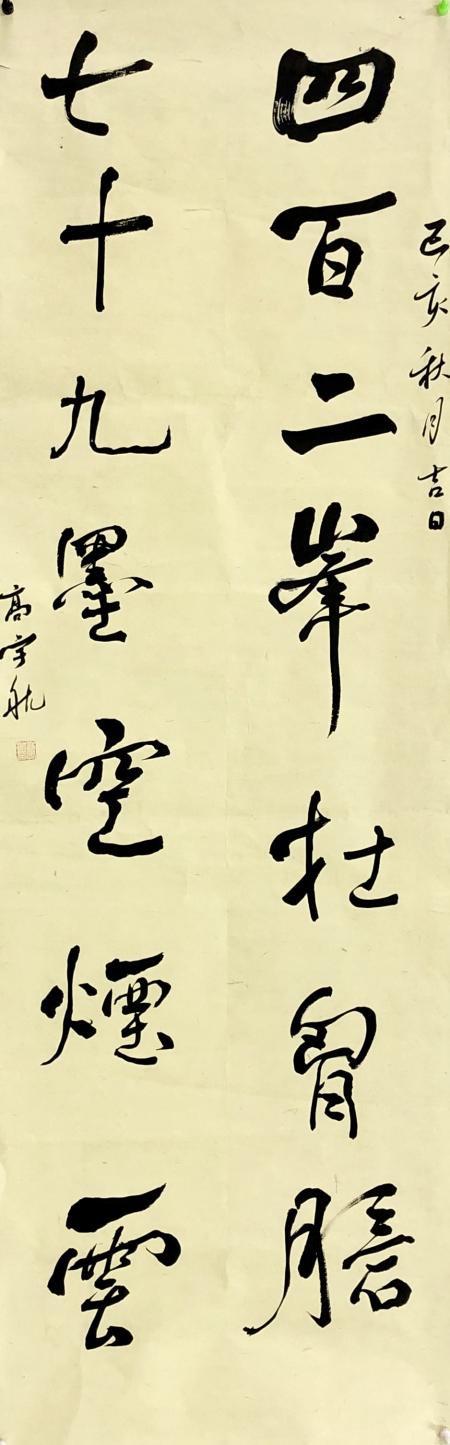 己亥秋月吉日
四百二峯壮胷膽
七十九墨空煙雲
高宇航